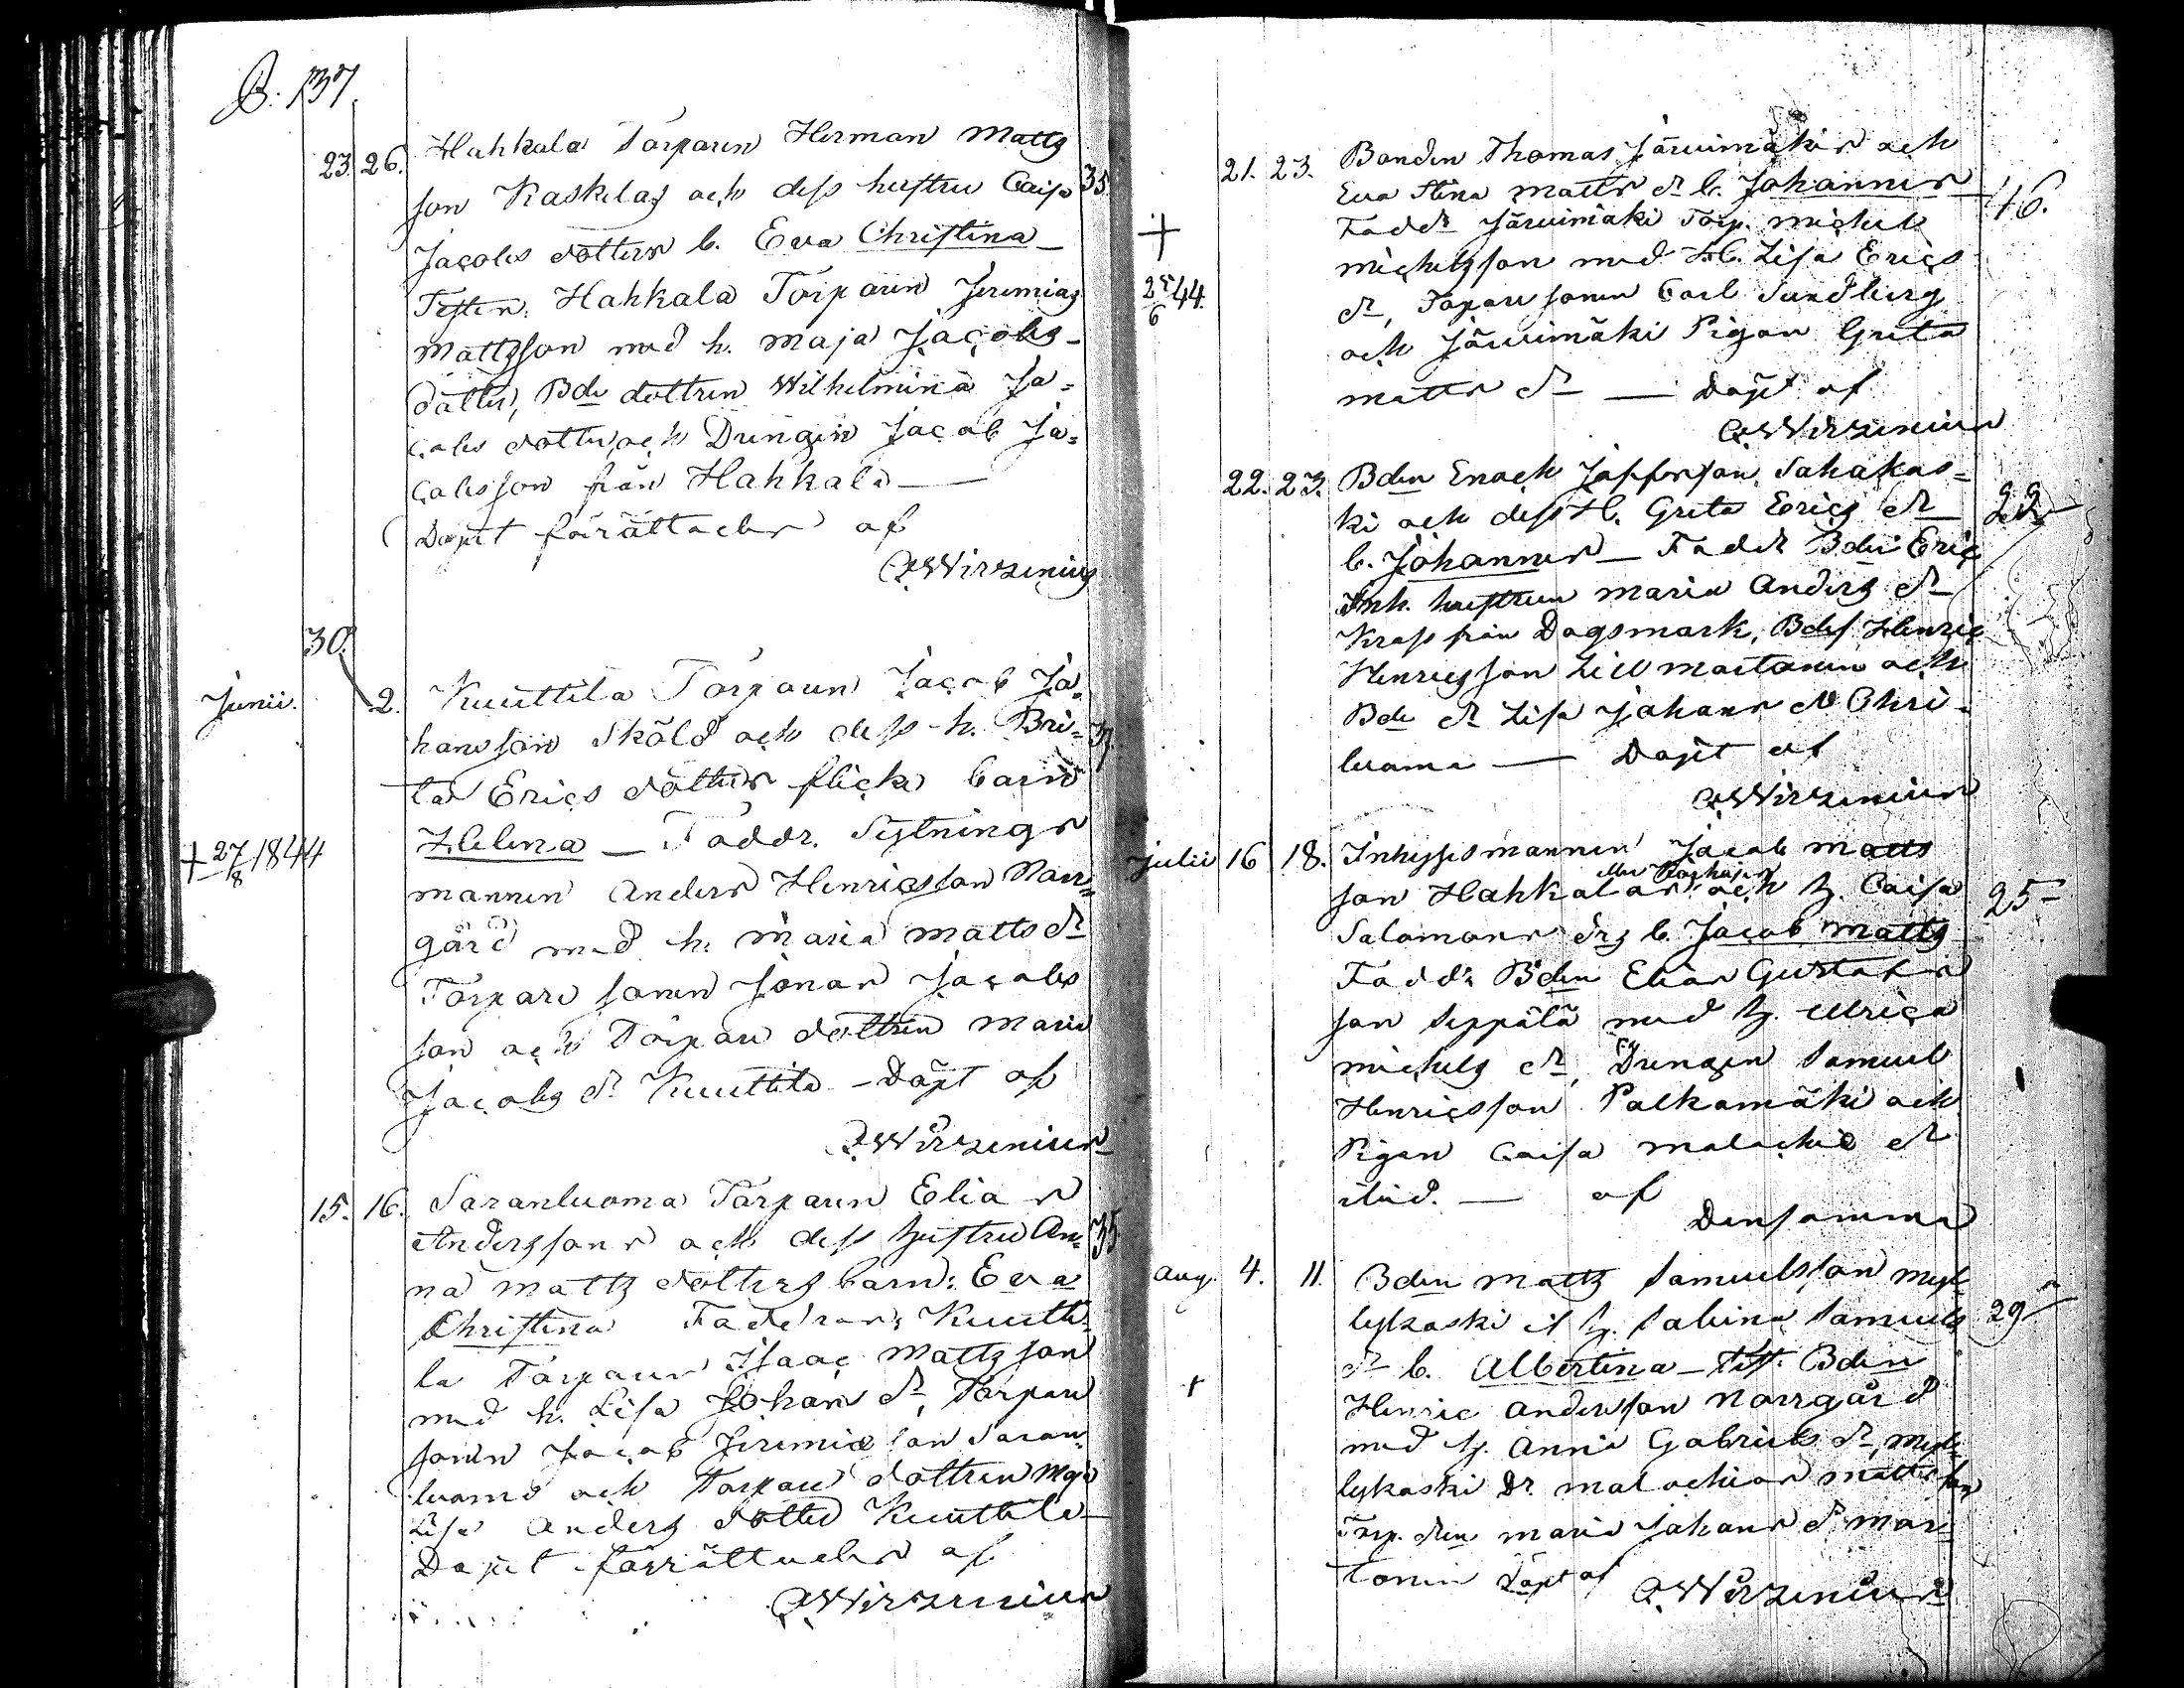 B. 137.
23. 26. Hahkala Torparen Herman Matts
son Kaskelas och dess hustru Caisa 35
Jacobs dotters b. Eva Christina —
Testen: Hahkala Torparen Jeremias
Mattsson med h. Maja Jacobs-
dotter, Bde dottren Wilhelmina Ja=
cobs dotter och Drängen Jacob Ja=
cobsson från Hahkala —
Döpt förättades af
QWirzenius
30.
Junii. 2. Kuuttila Torparen Jacob Jo=
hansson Sköld och dess h. Bri= 37
ta Erics dotters flicke barn
+ 27/8 1844 Helena — Faddr. Sytnings
mannen Anders Henricsson Norr=
gård med h. Maria Matts dr
Torpare sonen Jonas Jacobs
son och Torpare dottren Maria
Jacobs dr Kuuttila - Döpt af
QWirzenius
15. 16. Saranluoma Torparen Elias
Anderssons och dess hustru An= 35
na Matts dotters barn: Eva
Christina Faddrar: Kuutti=
la Torparen Isaac Mattsson
med h. Lisa Johans dr, Torpare
sonen Jacob Jeremiasson Saran=
luoma och Torpare dottren Maja
Lisa Anders dotter Kuuttila —
Döpt förrättades af
QWirzenius
21. 23. Bonden Thomas Järvimäkis och
Eva Stina Matts dr b. Johannes 46.
+ Faddr Järvimäki Torp. Michel
Michelsson med H. Lisa Erics
25/6 44. dr, Torpare sonen Carl Sundberg
och Järvimäki Pigan Greta
Matts dr — Döpt af
QWirzenius
22. 23. Bden Enoch Josefsson Sahakos=
ki och dess H. Greta Erics dr 22
b. Johannes — Faddr Bden Eric
Inh. hustrun Maria Anders dr
Krass från Dagsmark, Bdes Henric
Henricsson Lill och
Bde dr Lisa Johans dr
luoma — Döpt af
QWirzenius
Julii 16 18. Inhysesmannen Jacob Matts
son Hahkalas och h. Caisa 25
Salomons drs b. Jacob Matts
Faddr Bden Elias Gustafs
son Seppälä med h. Ulrica
Michels dr, Drängen Samuel
Henricsson Palkamäki och
Pigan Caisa Malachias dr
ibid. — af
Densamma
Aug. 4. 11. Bden Matts Samuelsson Myl=
lykoski et h. Sabina Samuels 29
+ dr b. Albertina — Test. Bden
Henric Andersson Norrgård
med h. Anna Gabriels dr, Myl=
lykoski Dr. Malachias Mattsson
Torp. dren Maria Johans dr
Döpt af QWirzenius